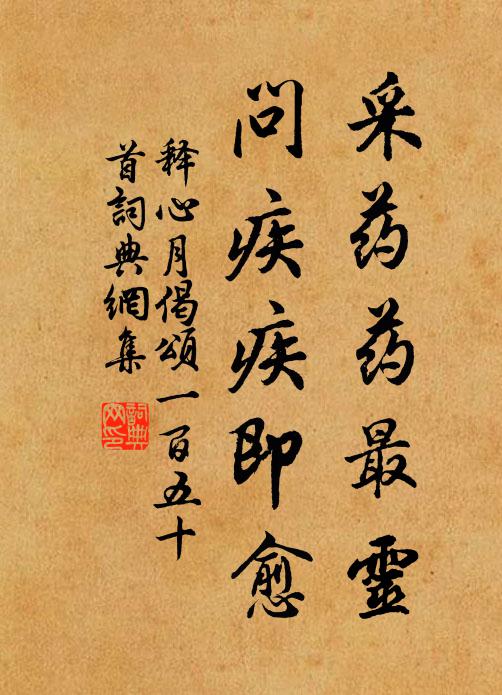 采药药最靈
問疾疾即愈
释心月偈頌一百五十
首詞典網集
詞典網印